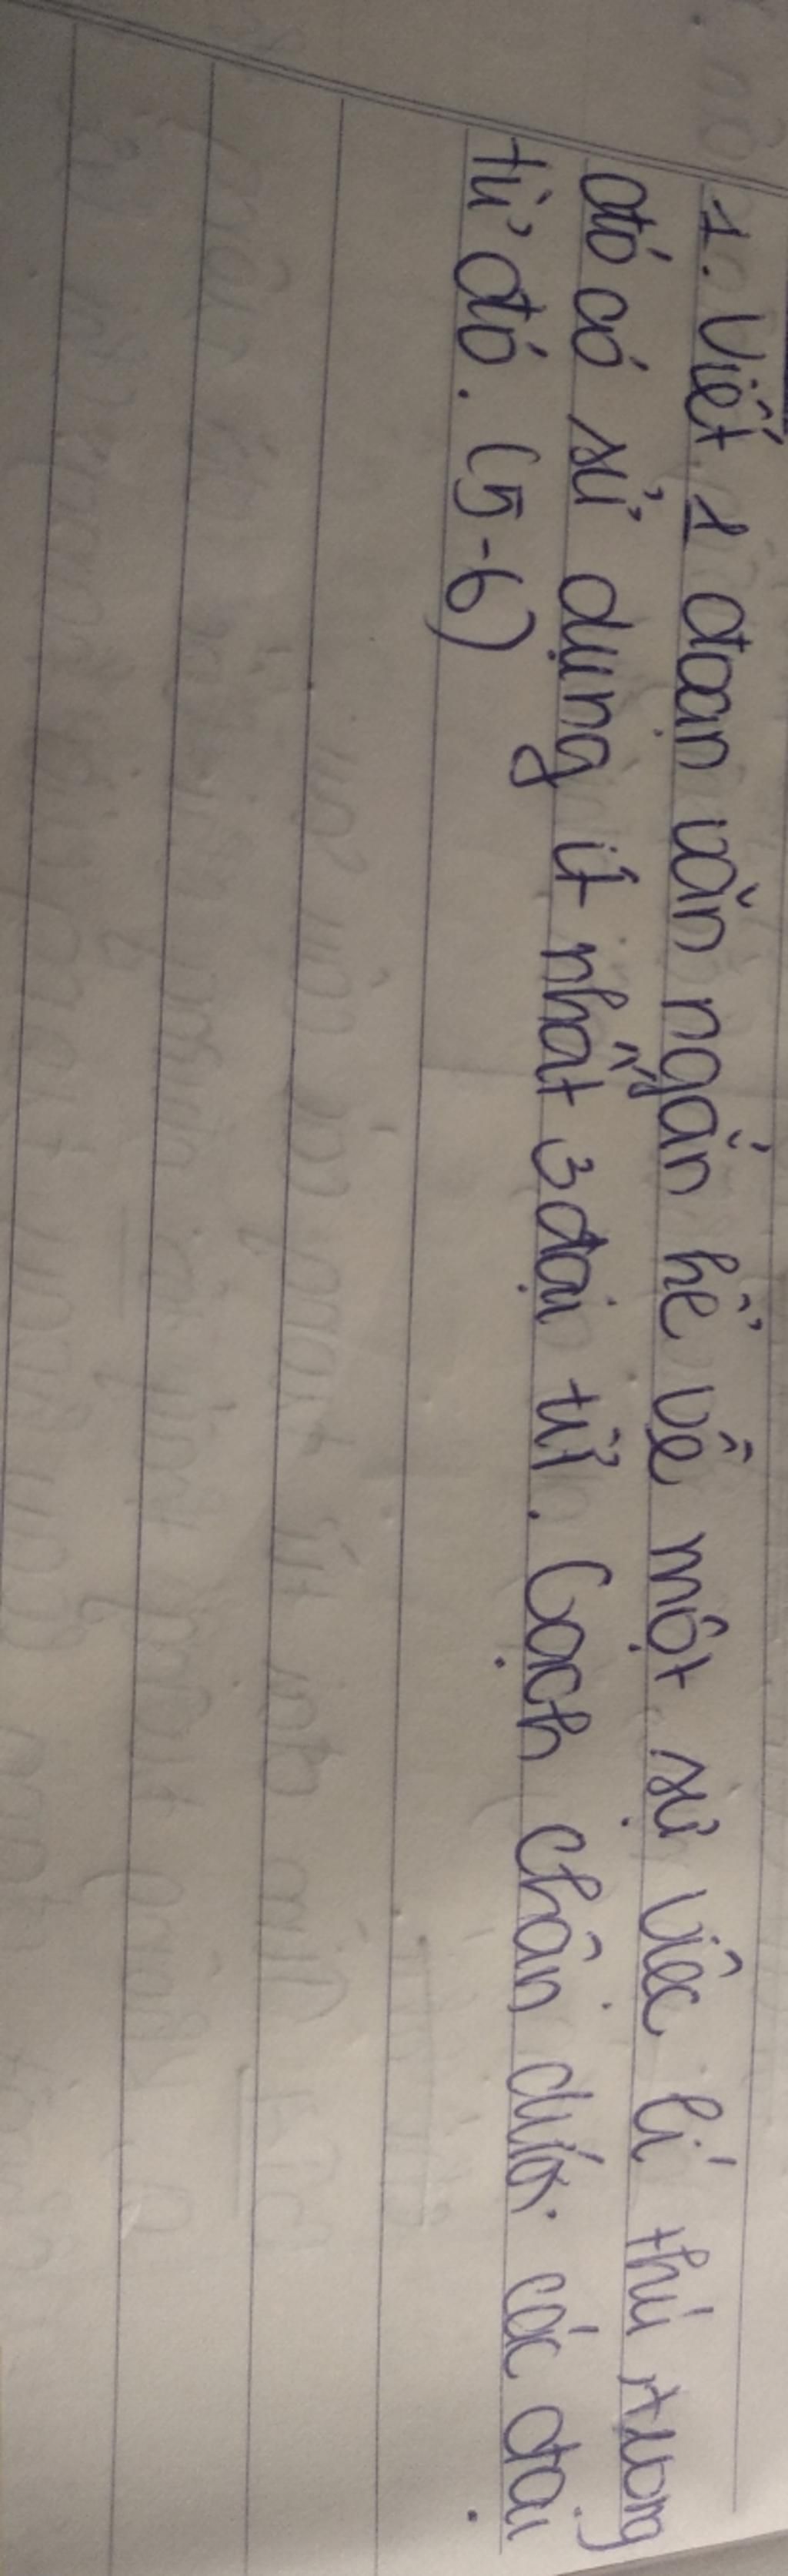 1. Viết 1 đoạn văn ngắn kể về một sự việc lí thú trong
đó có sử dụng ít nhất 3 đại từ. Gạch chân dưới các đại
từ đó. (5-6)